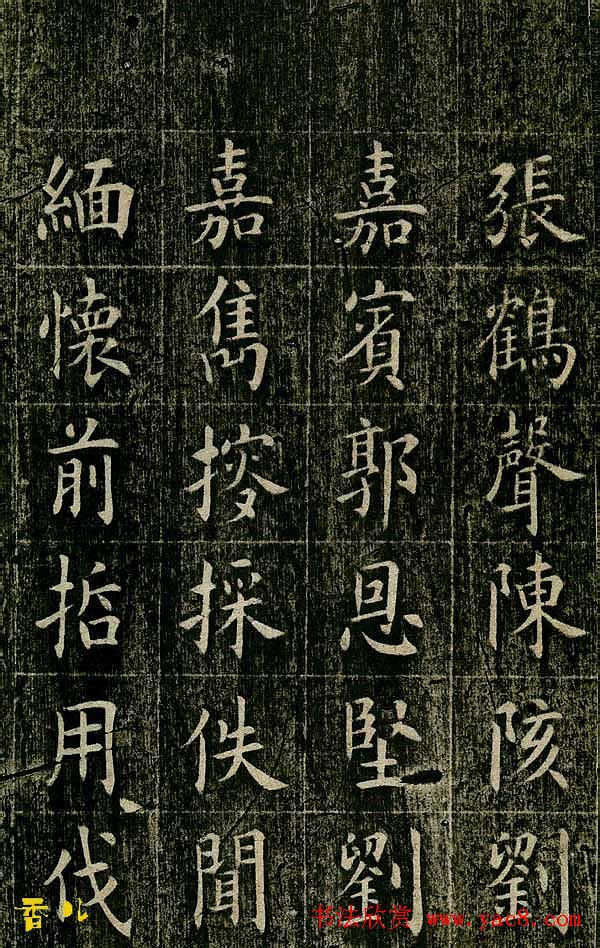 張鶴聲陳陔劉
嘉賓郭恩堅劉
嘉雋搜採佚聞
緬懷前哲用伐
书法欣赏 www.yac8.com